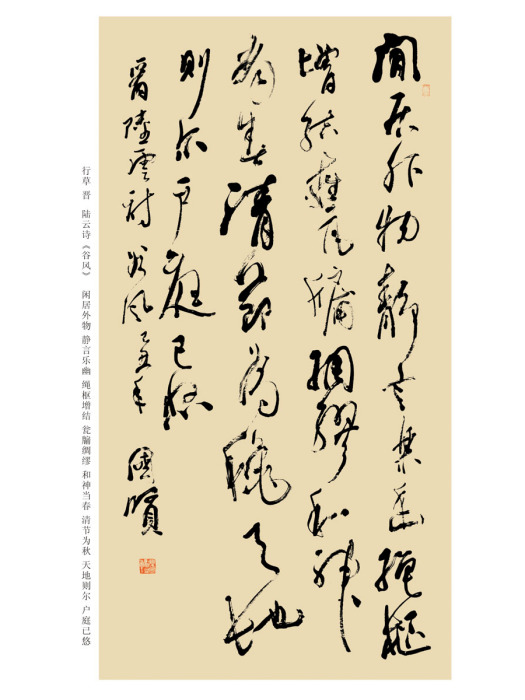 閒居外物静言樂幽繩樞
增結甕牖綢繆和神
當春清節為秋天地
則尔户庭已悠
晋陸雲詩谷风乙丑年國賢
行草 晋 陆云诗《谷风》 闲居外物 静言乐幽 绳枢增结 瓮牖绸缪 和神当春 清节为秋 天地则尔 户庭已悠